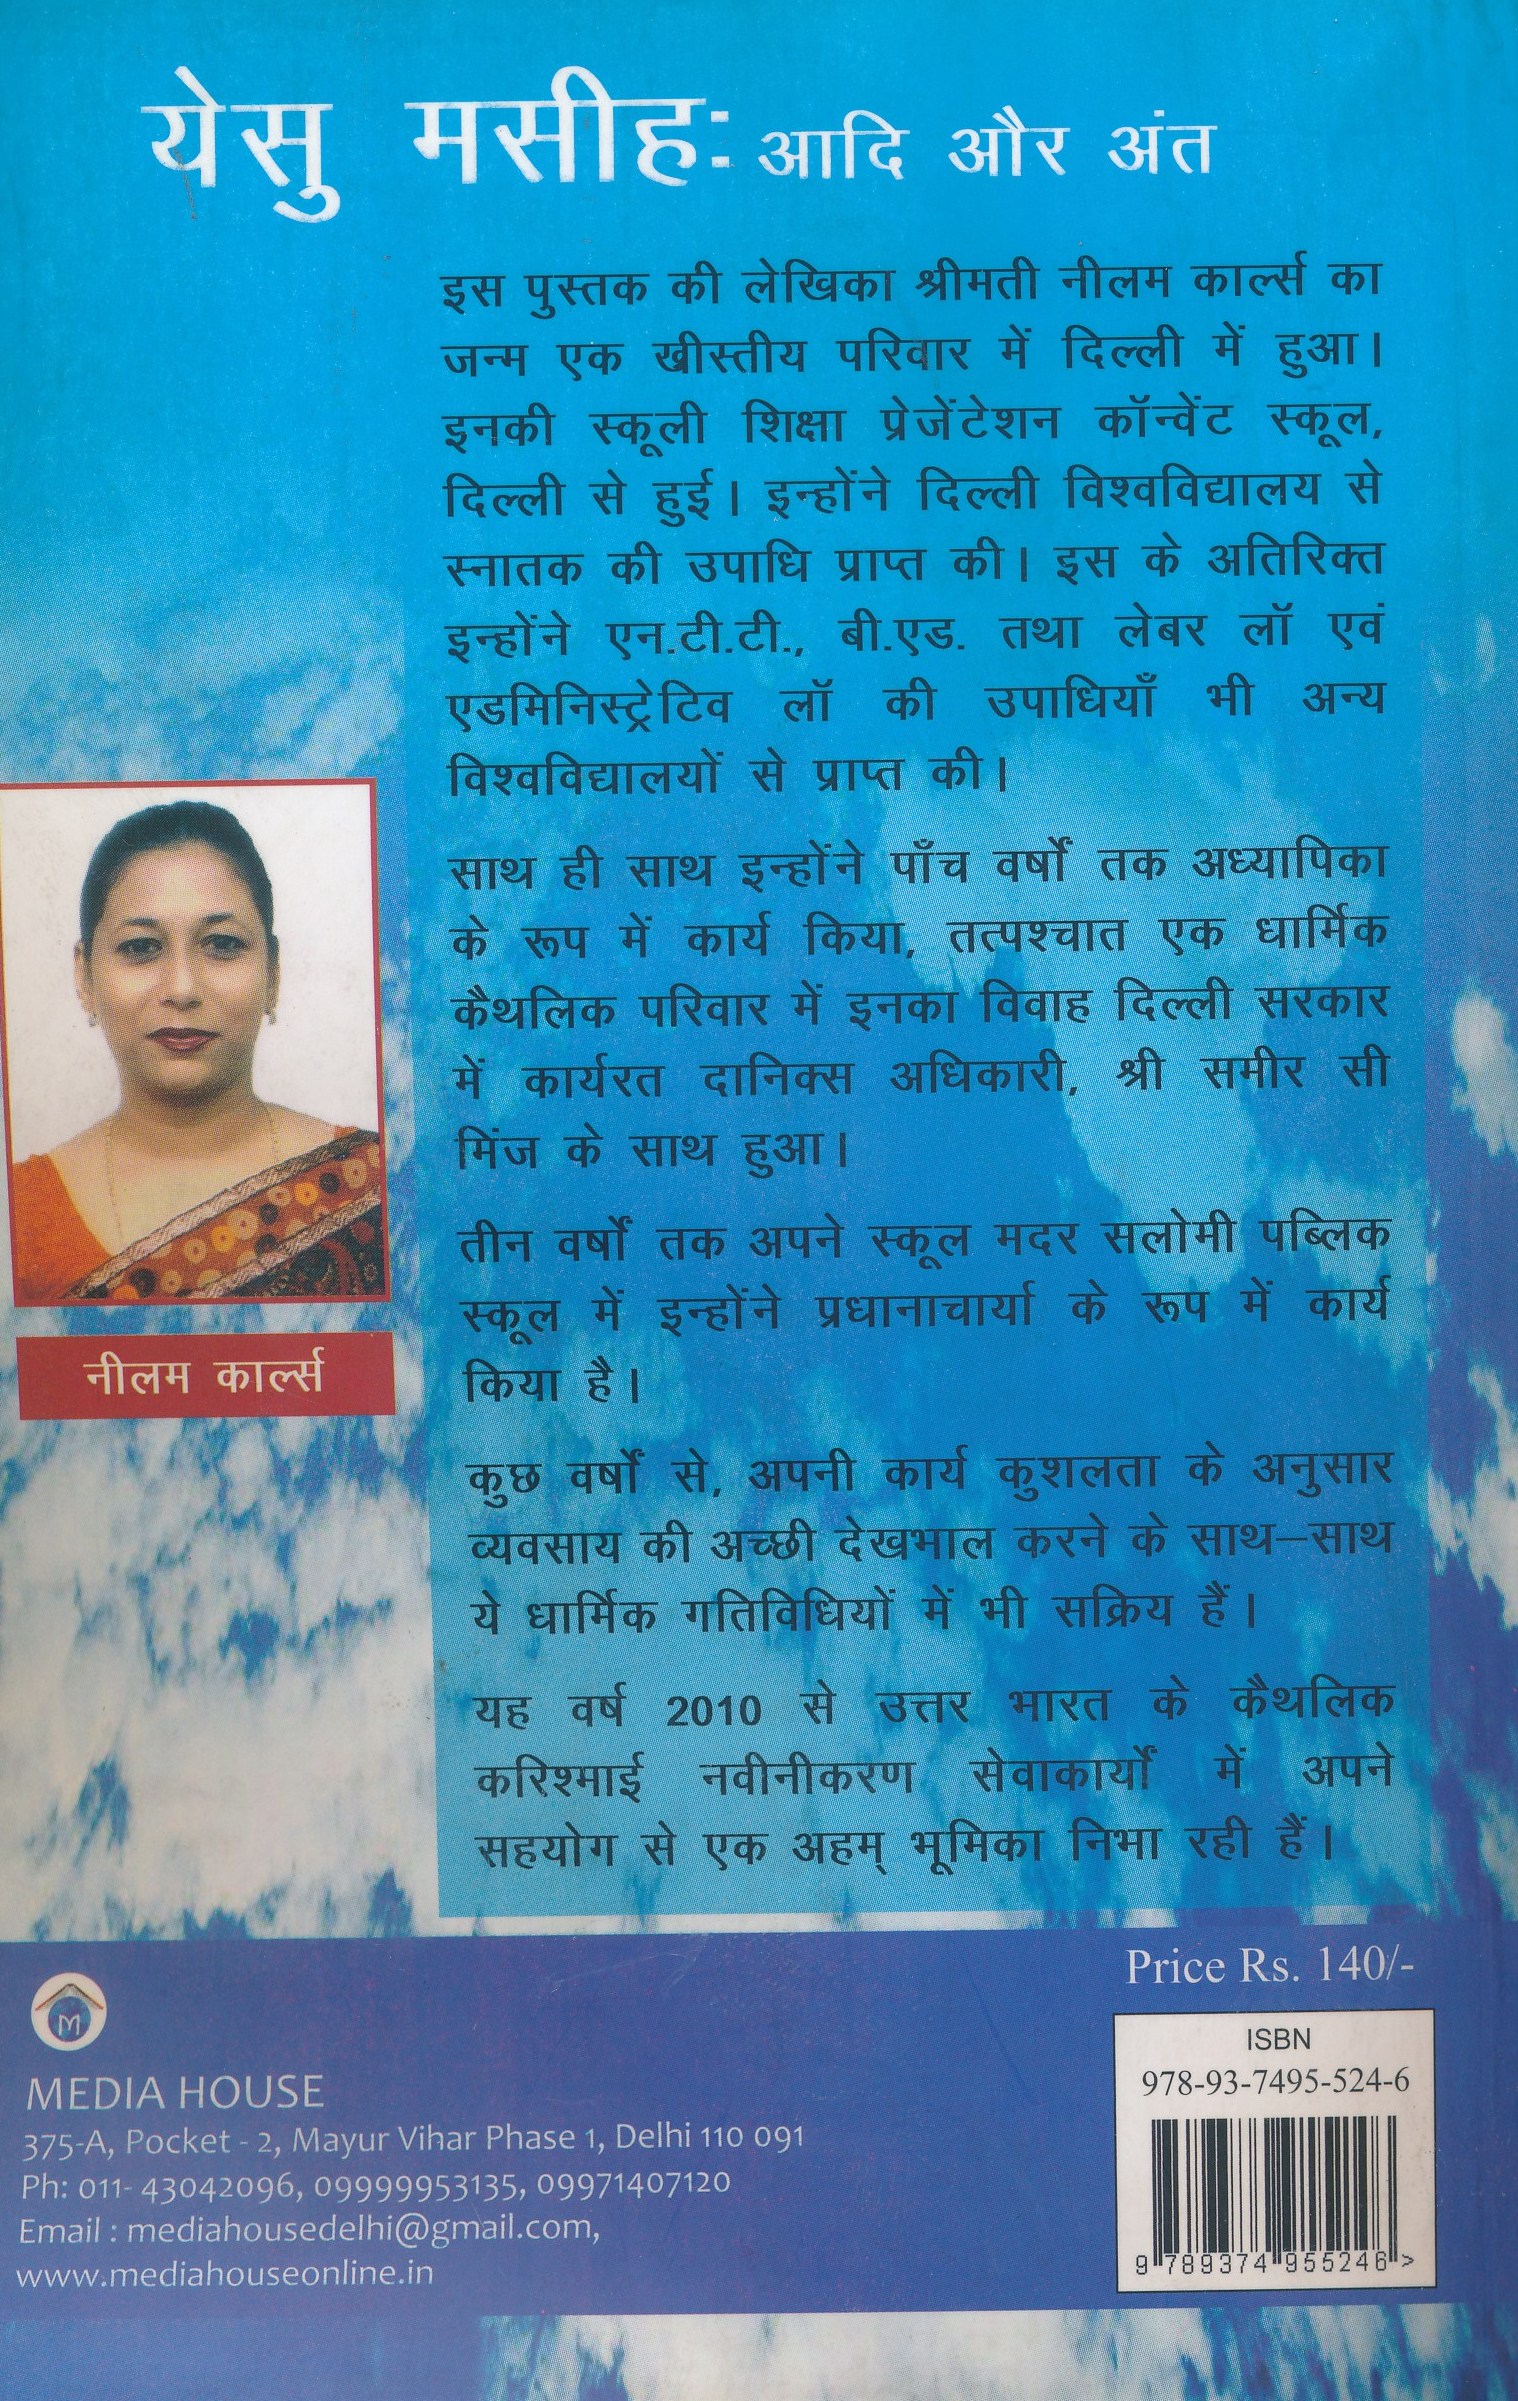 येसु मसीह: आदि और अंत
इस पुस्तक की लेखिका श्रीमती नीलम कार्ल्स का
जन्म एक खीस्तीय परिवार में दिल्ली में हुआ।
इनकी स्कूली शिक्षा प्रेजेंटेशन कॉन्वेंट स्कूल,
दिल्ली से हुई। इन्होंने दिल्ली विश्वविद्यालय से
स्नातक की उपाधि प्राप्त की। इस के अतिरिक्त
इन्होंने एन.टी.टी., बी.एड. तथा लेबर लॉ एवं
एडमिनिस्ट्रेटिव लॉ की उपाधियाँ भी अन्य
विश्वविद्यालयों से प्राप्त की।
साथ ही साथ इन्होंने पाँच वर्षों तक अध्यापिका
के रूप में कार्य किया, तत्पश्चात एक धार्मिक
कैथलिक परिवार में इनका विवाह दिल्ली सरकार
में कार्यरत दानिक्स अधिकारी, श्री समीर सी
मिंज के साथ हुआ।
तीन वर्षों तक अपने स्कूल मदर सलोमी पब्लिक
स्कूल में इन्होंने प्रधानाचार्या के रूप में कार्य
किया है।
कुछ वर्षों से, अपनी कार्य कुशलता के अनुसार
व्यवसाय की अच्छी देखभाल करने के साथ–साथ
ये धार्मिक गतिविधियों में भी सक्रिय हैं।
यह वर्ष 2010 से उत्तर भारत के कैथलिक
करिश्माई नवीनीकरण सेवाकार्यों में अपने
सहयोग से एक अहम् भूमिका निभा रही हैं।
नीलम कार्ल्स
M
MEDIA HOUSE
375-A, Pocket - 2, Mayur Vihar Phase 1, Delhi 110 091
Ph: 011- 43042096, 09999953135, 09971407120
Email : mediahousedelhi@gmail.com,
www.mediahouseonline.in
Price Rs. 140/-
ISBN
978-93-7495-524-6
9 789374 955246 >